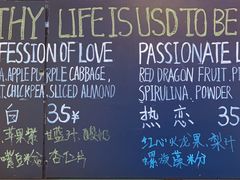 THY LIFE IS USD TO BE
FESSION OF LOVE
A.APPLE PURPLE CABBAGE,
T.CHICKPEA, SLICED ALMOND
白 35¥
苹果紫甘蓝汁
杏仁片
PASSIONATE L
RED DRAGON FRUIT, P
SPIRULINA, POWDER
热恋 35
红心火龙果,梨汁
螺旋藻米分